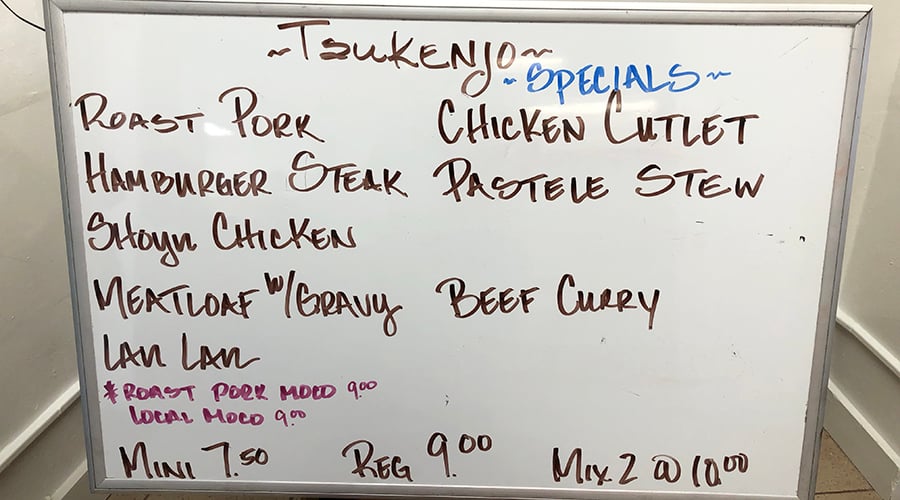 ~Tsukenjo~
~SPECIALS~
ROAST PORK
HAMBURGER STEAK
SHOYU CHICKEN
MEATLOAF W/GRAVY
LAU LAU
*ROAST PORK MOCO 9.00
LOCAL MOCO 9.00
CHICKEN CUTLET
PASTELE STEW
BEEF CURRY
MINI 7.50 REG 9.00 MIX 2 @ 10.00